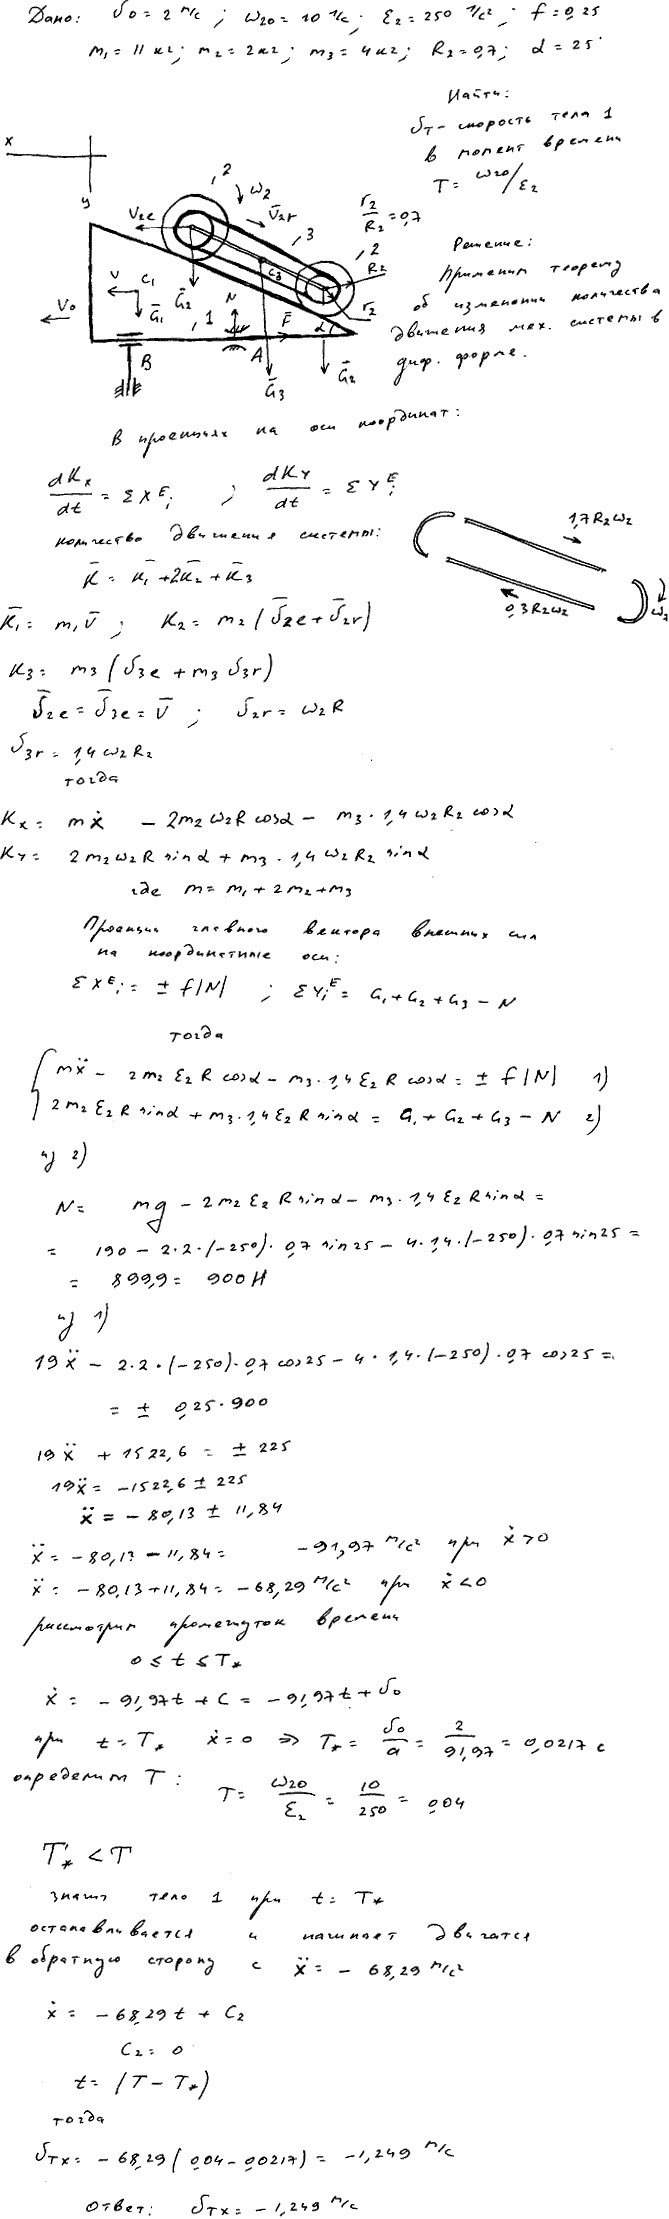 Дано: υ₀ = 2 м/с ; ω₂₀ = 10 1/с ; ε₂ = 250 1/с² ; f = 0,25
m₁ = 11 кг ; m₂ = 2 кг ; m₃ = 4 кг ; R₂ = 0,7 ; α = 25°
Найти:
υт - скорость тела 1
в момент времени
T = ω₂₀/ε₂
x
y
2
ω₂
V̄₂r
V₂e
3
r₂/R₂ = 0,7
2
R₂
r₂
C₃
V
C₁
Ḡ₁
Ḡ₂
N
1
F̄
α
V₀
B
A
Ḡ₃
Ḡ₂
Решение:
Применим теорему
об изменении количества
движения мех. системы в
диф. форме.
В проекциях на оси координат:
dKx/dt = ΣXᴱᵢ ; dKy/dt = ΣYᴱᵢ
количество движения системы:
K̄ = K̄₁ + 2K̄₂ + K̄₃
1,7 R₂ω₂
0,3 R₂ω₂
ω₂
K̄₁ = m₁V̄ ; K₂ = m₂(ῡ₂e + ῡ₂r)
K₃ = m₃(υ₃e + m₃υ₃r)
ῡ₂e = ῡ₃e = V̄ ; υ₂r = ω₂R
υ₃r = 1,4 ω₂R₂
тогда
Kx = mẋ - 2m₂ω₂R cosα - m₃·1,4 ω₂R₂ cosα
Ky = 2m₂ω₂R sinα + m₃·1,4 ω₂R₂ sinα
где m = m₁ + 2m₂ + m₃
Проекции главного вектора внешних сил
на координатные оси:
ΣXᴱᵢ = ± f|N| ; ΣYᵢᴱ = G₁ + G₂ + G₃ - N
тогда
mẍ - 2m₂ε₂R cosα - m₃·1,4 ε₂R cosα = ± f|N| 1)
2m₂ε₂R sinα + m₃·1,4 ε₂R sinα = G₁ + G₂ + G₃ - N 2)
из 2)
N = mg - 2m₂ε₂R sinα - m₃·1,4 ε₂R sinα =
= 190 - 2·2·(-250)·0,7 sin25 - 4·1,4·(-250)·0,7 sin25 =
= 899,9 = 900 Н
из 1)
19ẍ - 2·2·(-250)·0,7 cos25 - 4·1,4·(-250)·0,7 cos25 =
= ± 0,25·900
19ẍ + 1522,6 = ± 225
19ẍ = -1522,6 ± 225
ẍ = -80,13 ± 11,84
ẍ = -80,13 - 11,84 = -91,97 м/с² при ẋ>0
ẍ = -80,13 + 11,84 = -68,29 м/с² при ẋ<0
рассмотрим промежуток времени
0 ≤ t ≤ T*
ẋ = -91,97t + C = -91,97t + υ₀
при t = T* ẋ = 0 ⇒ T* = υ₀/a = 2/91,97 = 0,0217 с
определим T: T = ω₂₀/ε₂ = 10/250 = 0,04
T* < T
значит тело 1 при t = T*
останавливается и начинает двигатся
в обратную сторону с ẍ = -68,29 м/с²
ẋ = -68,29t + C₂
C₂ = 0
t = (T - T*)
тогда
υтx = -68,29(0,04 - 0,0217) = -1,249 м/с
ответ: υтx = -1,249 м/с